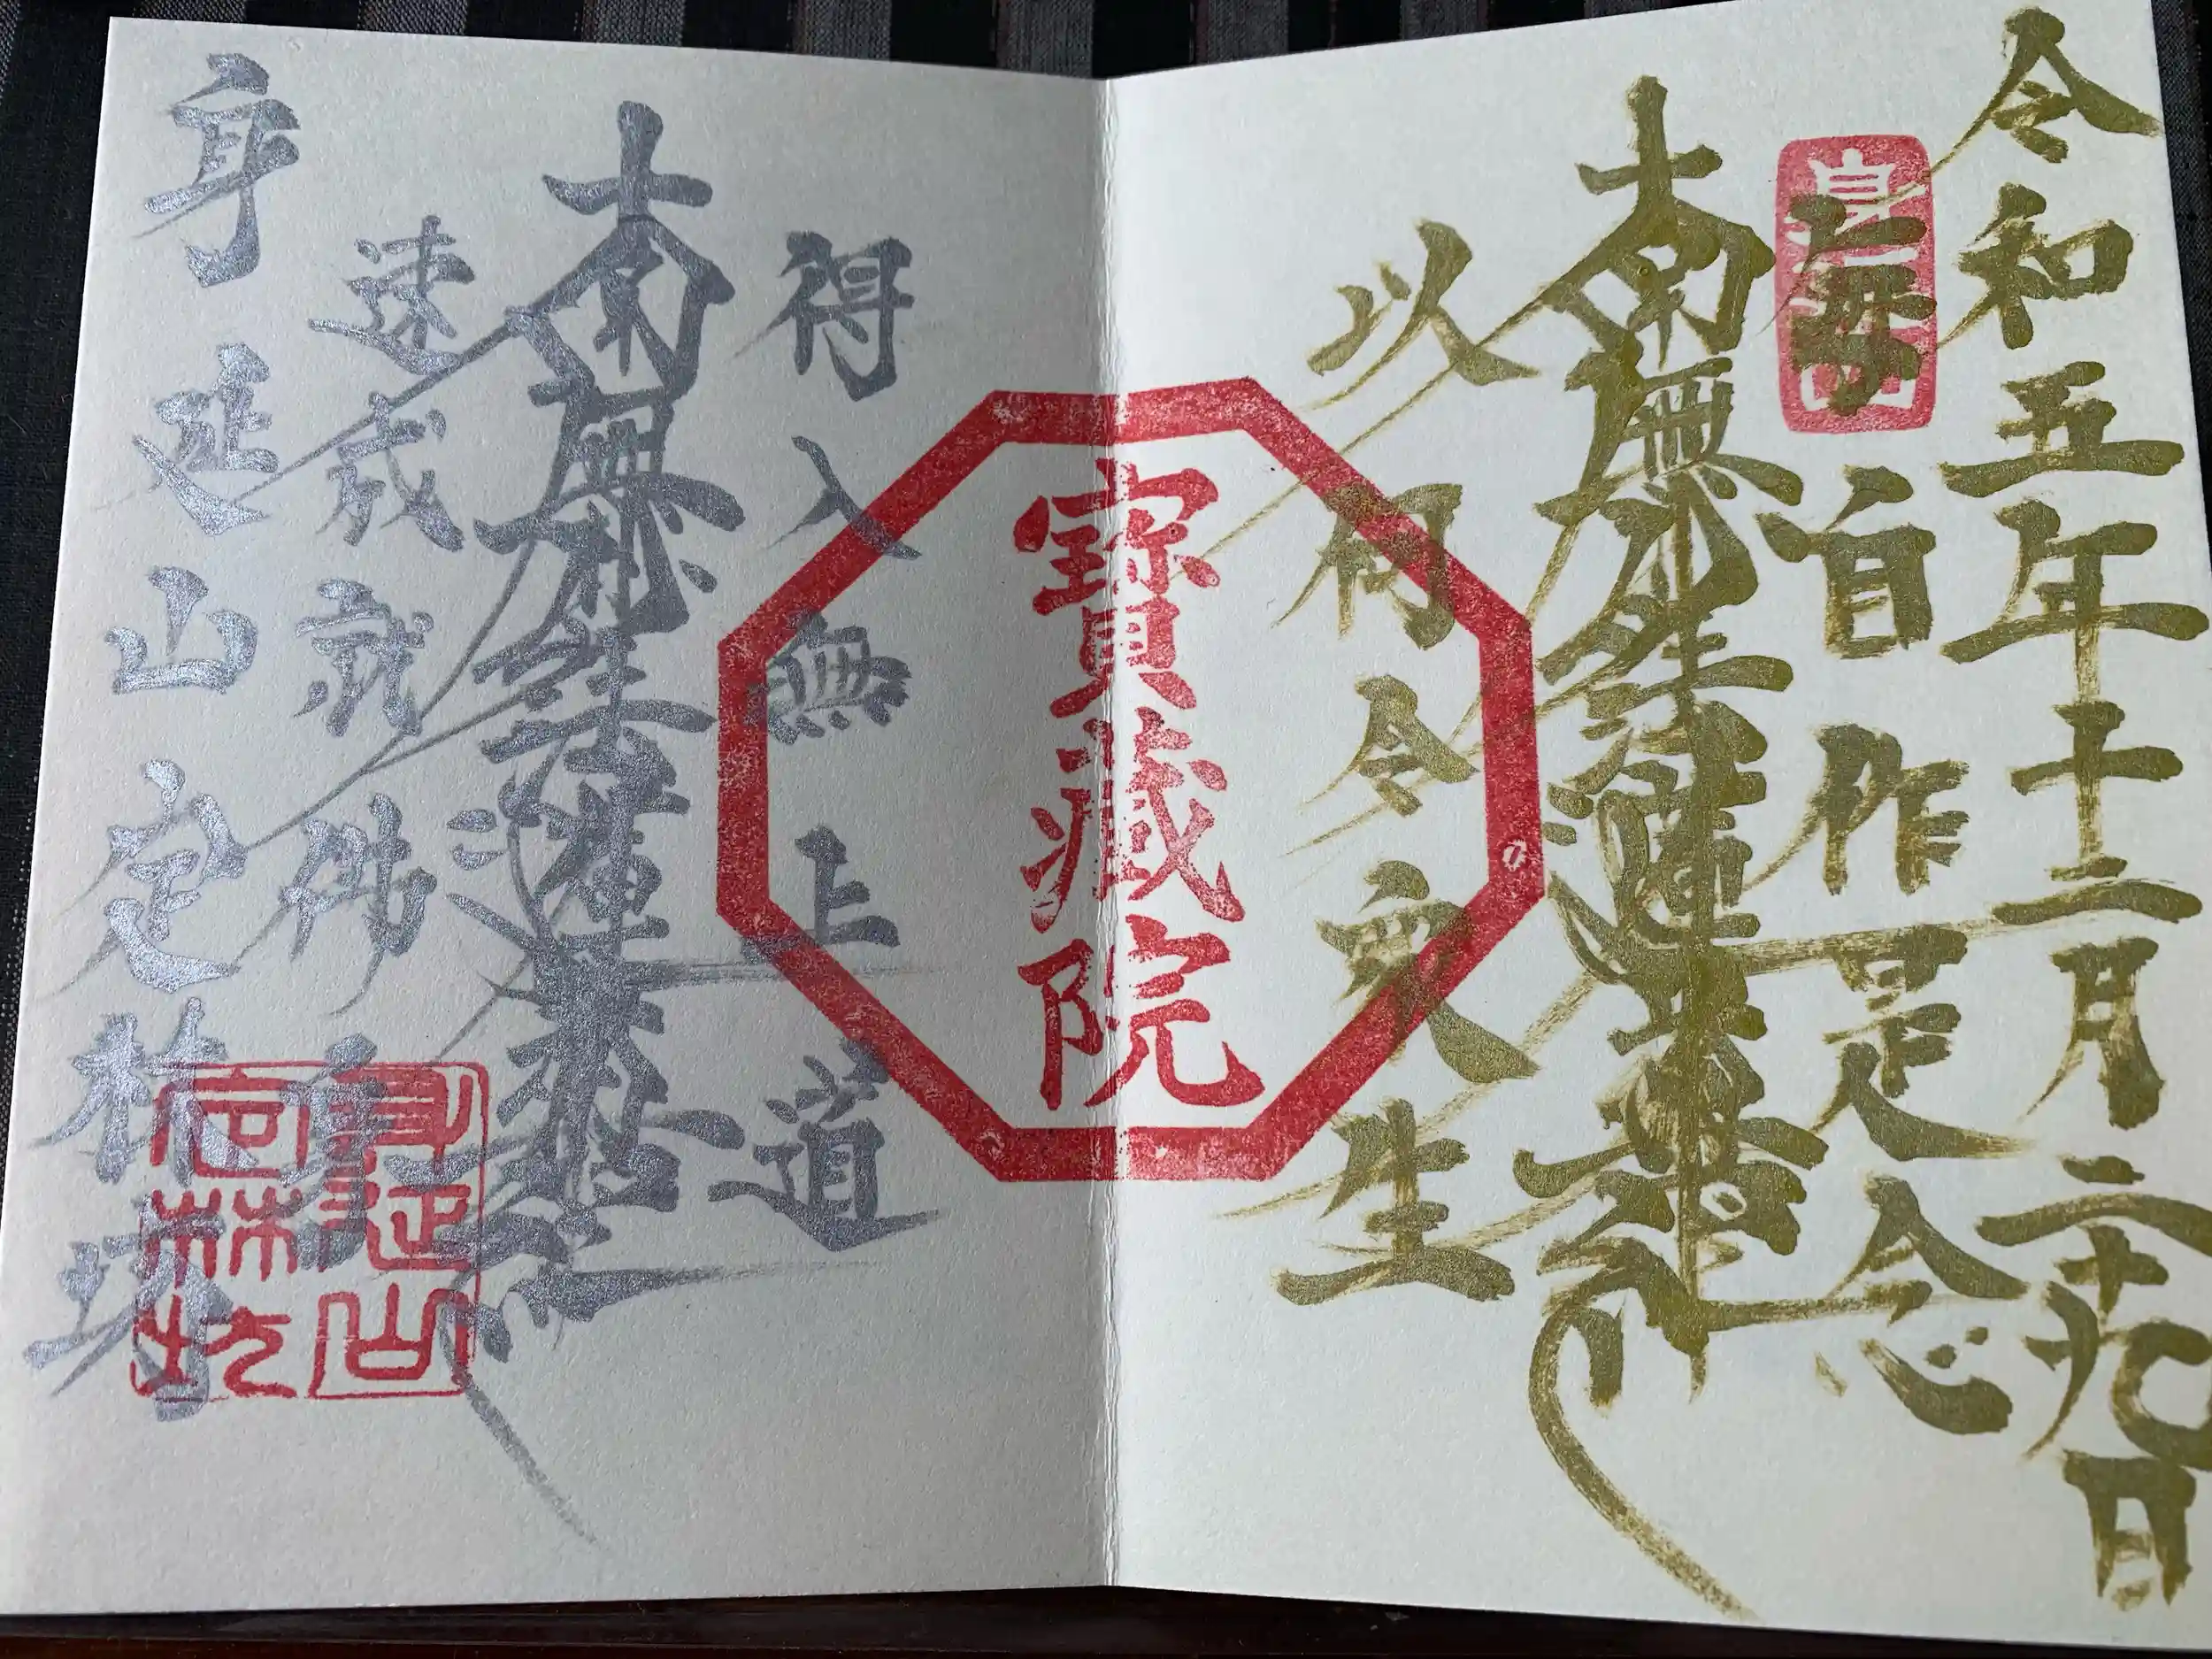 令和五年十二月二十九日
身延山
毎自作是念
南無妙法蓮華経
以何令衆生
寶藏院
得入無上道
南無妙法蓮華経
速成就佛身
身延山定林坊
身延山
定林坊